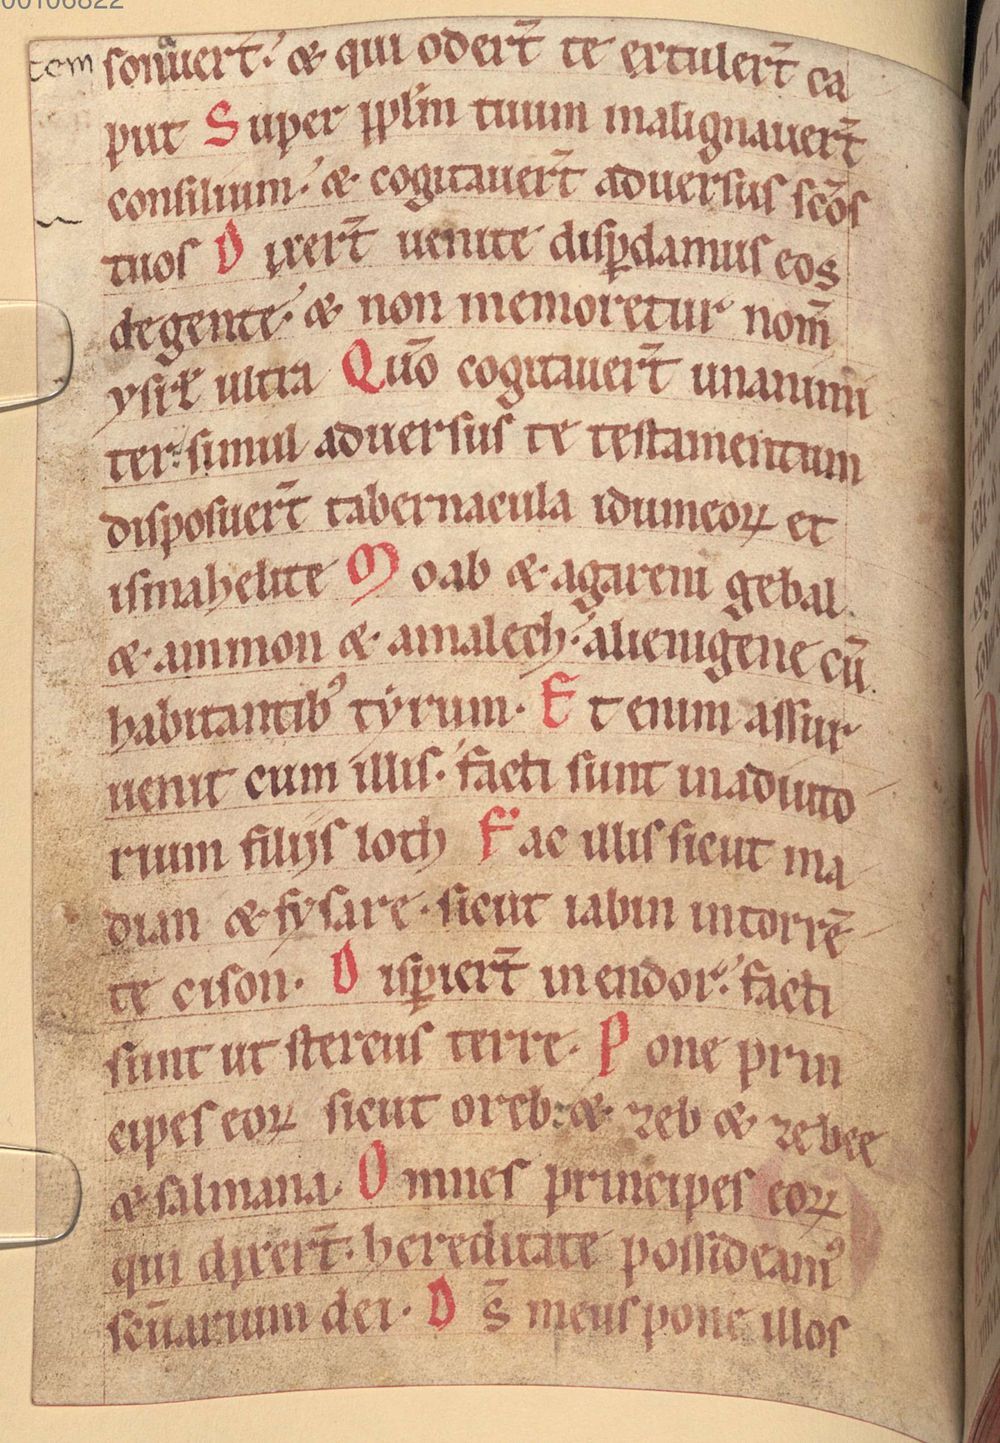 00106822
tem sonuert̄. & qui odert̄ te extulert̄ ca
put Super pp̄lm tuum malignauert̄
consilium. & cogitauert̄ aduersus sc̄os
tuos Dixert̄ uenite disꝑdamus eos
degente. & non memoretur nom̄
ysrł ultra Quō cogitauert̄ unanimi
ter. simul aduersus te testamentum
disposuert̄ tabernacula idumeoꝝ et
ismahelite Moab & agareni gebal.
& ammon & amalech. alienigene cū
habitantibꝰ tyrum. Etenim assur
uenit cum illis. facti sunt inadiuto
rium filijs loth Fac illis sicut ma
dian & sysare. sicut iabin intorrē
te cison. Disꝑiert̄ in endor. facti
sunt ut stercus terre. Pone prin
cipes eoꝝ sicut oreb. & zeb & zebee
& salmana. Omnes principes eoꝝ
qui dixert̄. hereditate possideamꝰ
scūarium dei. Ds̄ meus pone illos